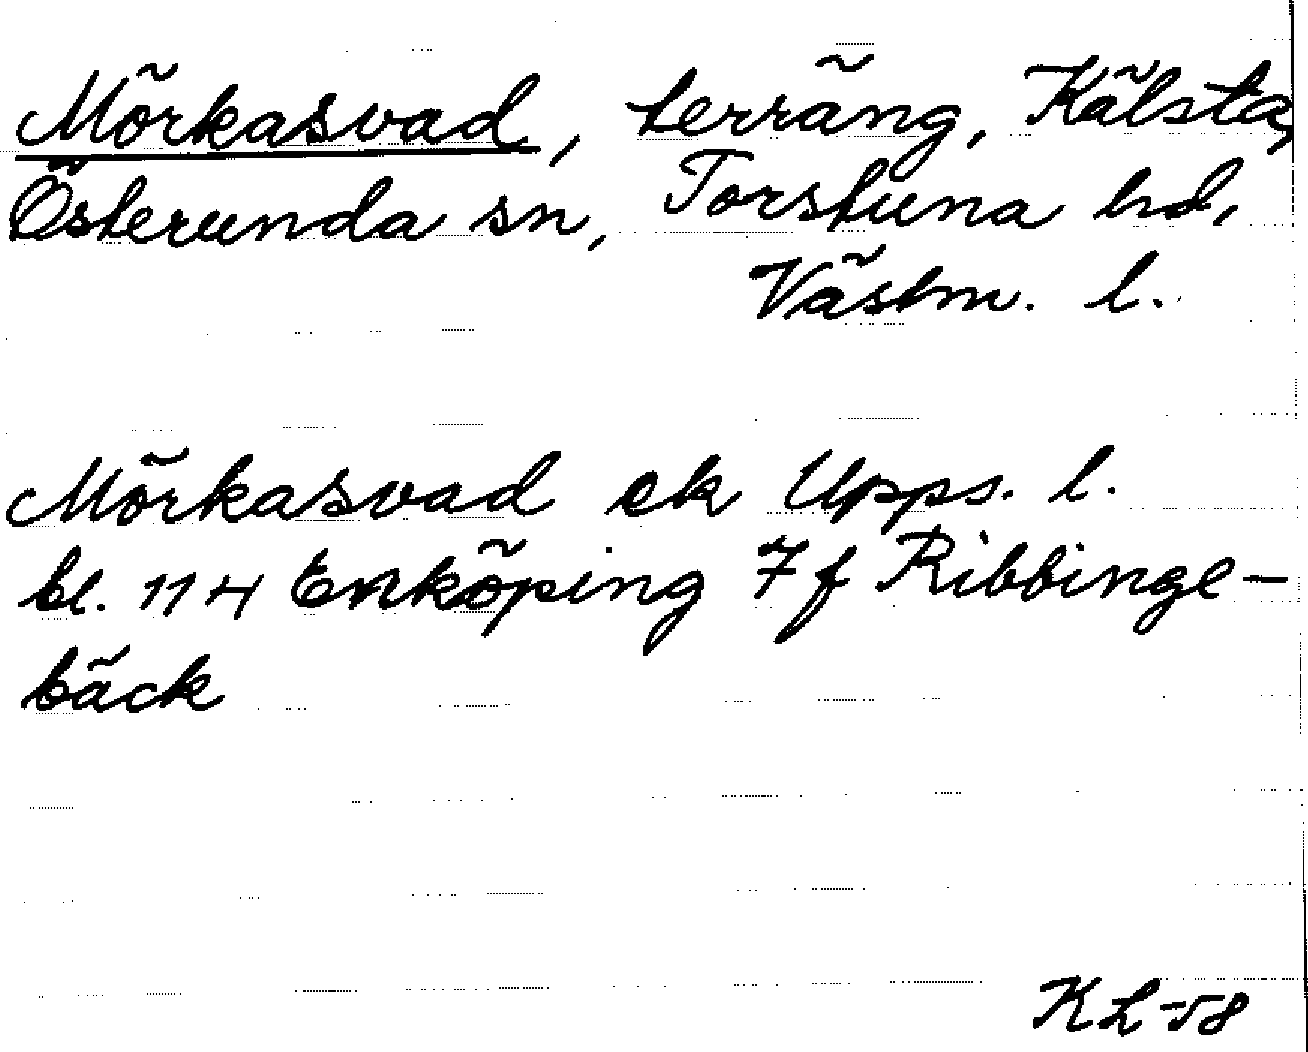 Mörkasvad, terräng, Kälsta,
Österunda sn, Torstuna hd,
Västm. l.
Mörkasvad ek Upps. l.
bl. 114 Enköping 7f Ribbinge-
bäck
KL-58